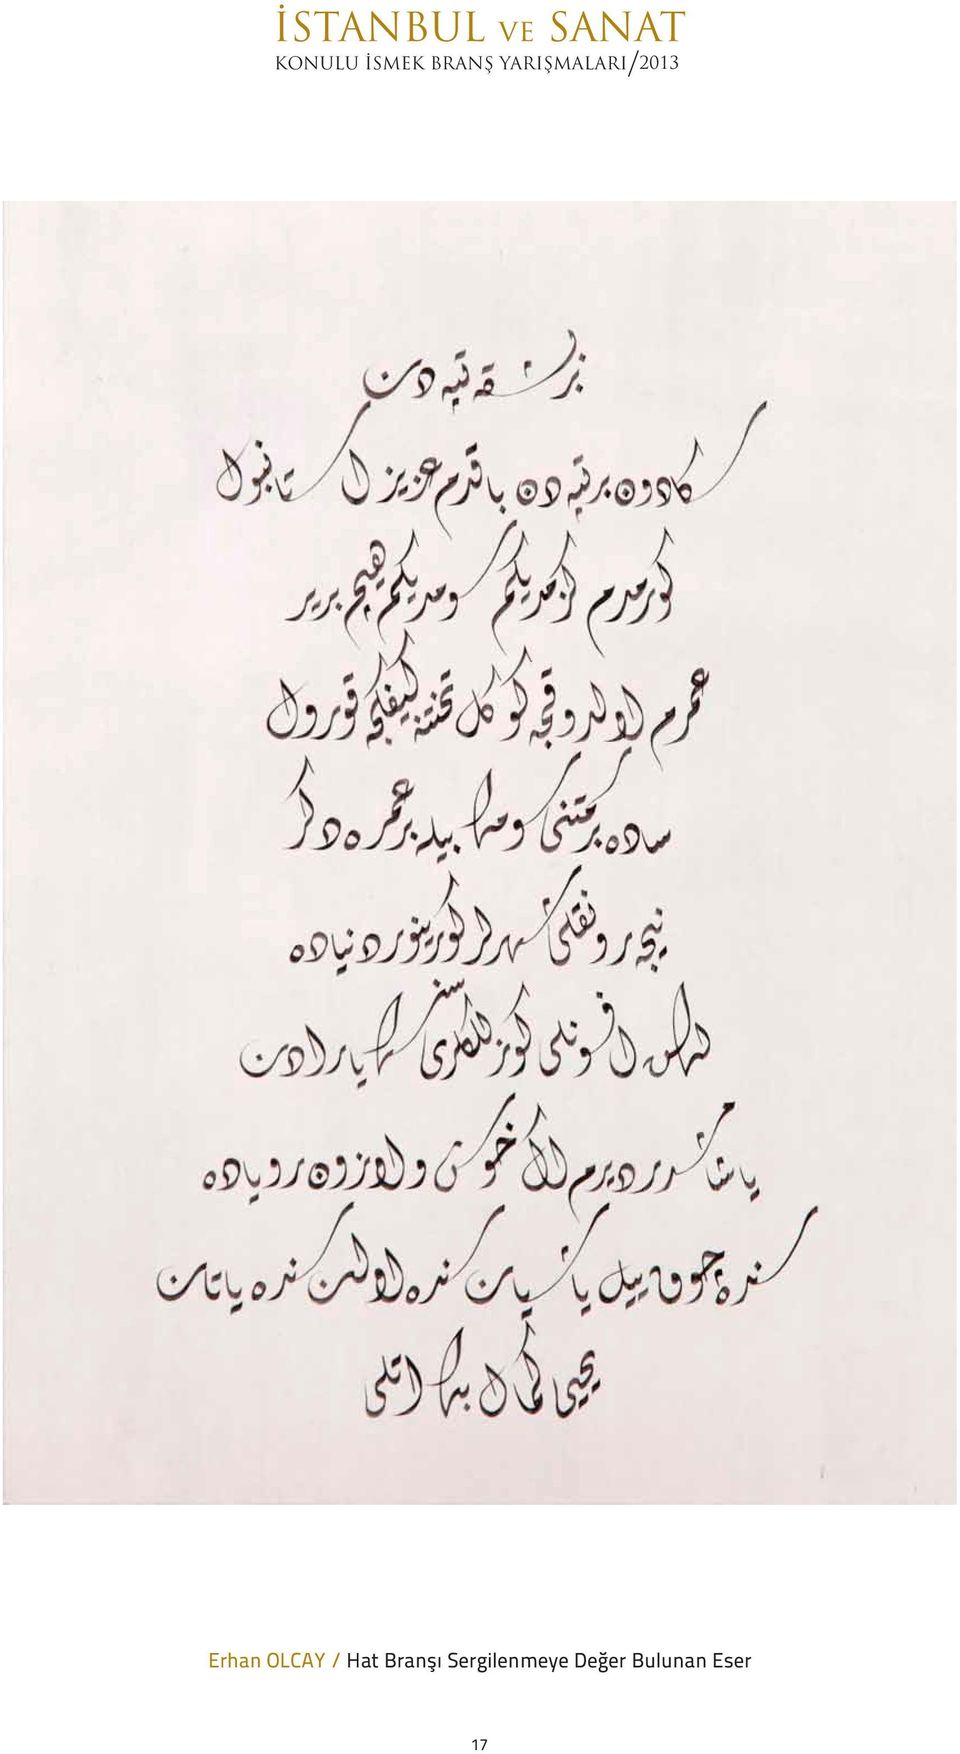 İSTANBUL VE SANAT
KONULU İSMEK BRANŞ YARIŞMALARI/2013
بر تپه دن
دون بر تپه دن باقدم عزیز استانبول
کورمدم کزمدیکم سومدیکم هیچ بر یر
عمرم اولدوقجه کوکل تختنه کیفکجه قورول
ساده بر سمتنی سومك بیله بر عمره دکر
نیجه رونقلی شهرلر کورینور دنیاده
لکن افسونلی کوزللکلری سنسك یارادان
یاشامشدر دیرم اك خوش و اوزون رویاده
سنده چوق ییل یاشایان سنده اولن سنده یاتان
یحیی کمال بیاتلی
Erhan OLCAY / Hat Branşı Sergilenmeye Değer Bulunan Eser
17